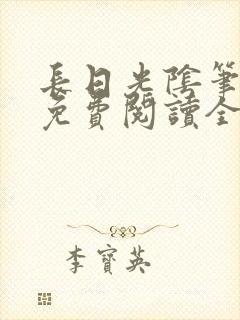 長日光陰筆
免費閱讀全
李寶英